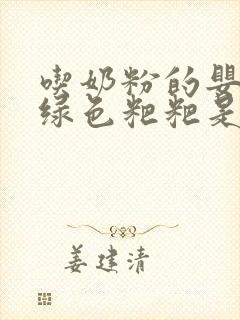 喫奶粉的嬰
绿色粑粑是
姜建清